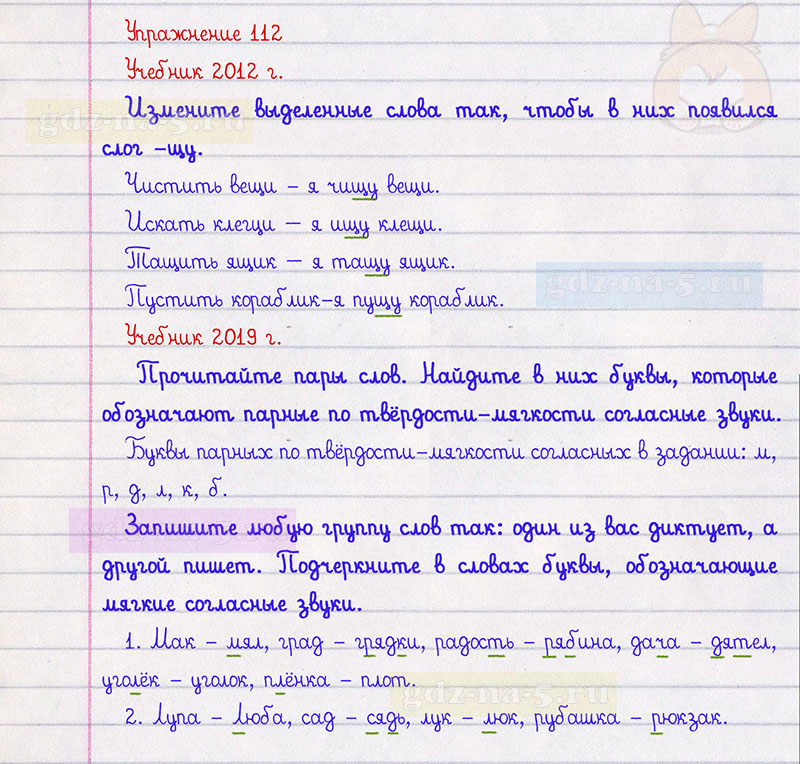 Упражнение 112
Учебник 2012 г.
Измените выделенные слова так, чтобы в них появился
слог –щу.
gdz-na-5.ru
Чистить вещи – я чищу вещи.
Искать клещи – я ищу клещи.
Тащить ящик – я тащу ящик.
gdz-na-5.ru
Пустить кораблик–я пущу кораблик.
Учебник 2019 г.
Прочитайте пары слов. Найдите в них буквы, которые
обозначают парные по твёрдости–мягкости согласные звуки.
Буквы парных по твёрдости–мягкости согласных в задании: м,
р, д, л, к, б.
Запишите любую группу слов так: один из вас диктует, а
другой пишет. Подчеркните в словах буквы, обозначающие
мягкие согласные звуки.
1. Мак – мял, град – грядки, радость – рябина, дача – дятел,
уголёк – уголок, плёнка – плот.
gdz-na-5.ru
2. Лупа – Люба, сад – сядь, лук – люк, рубашка – рюкзак.